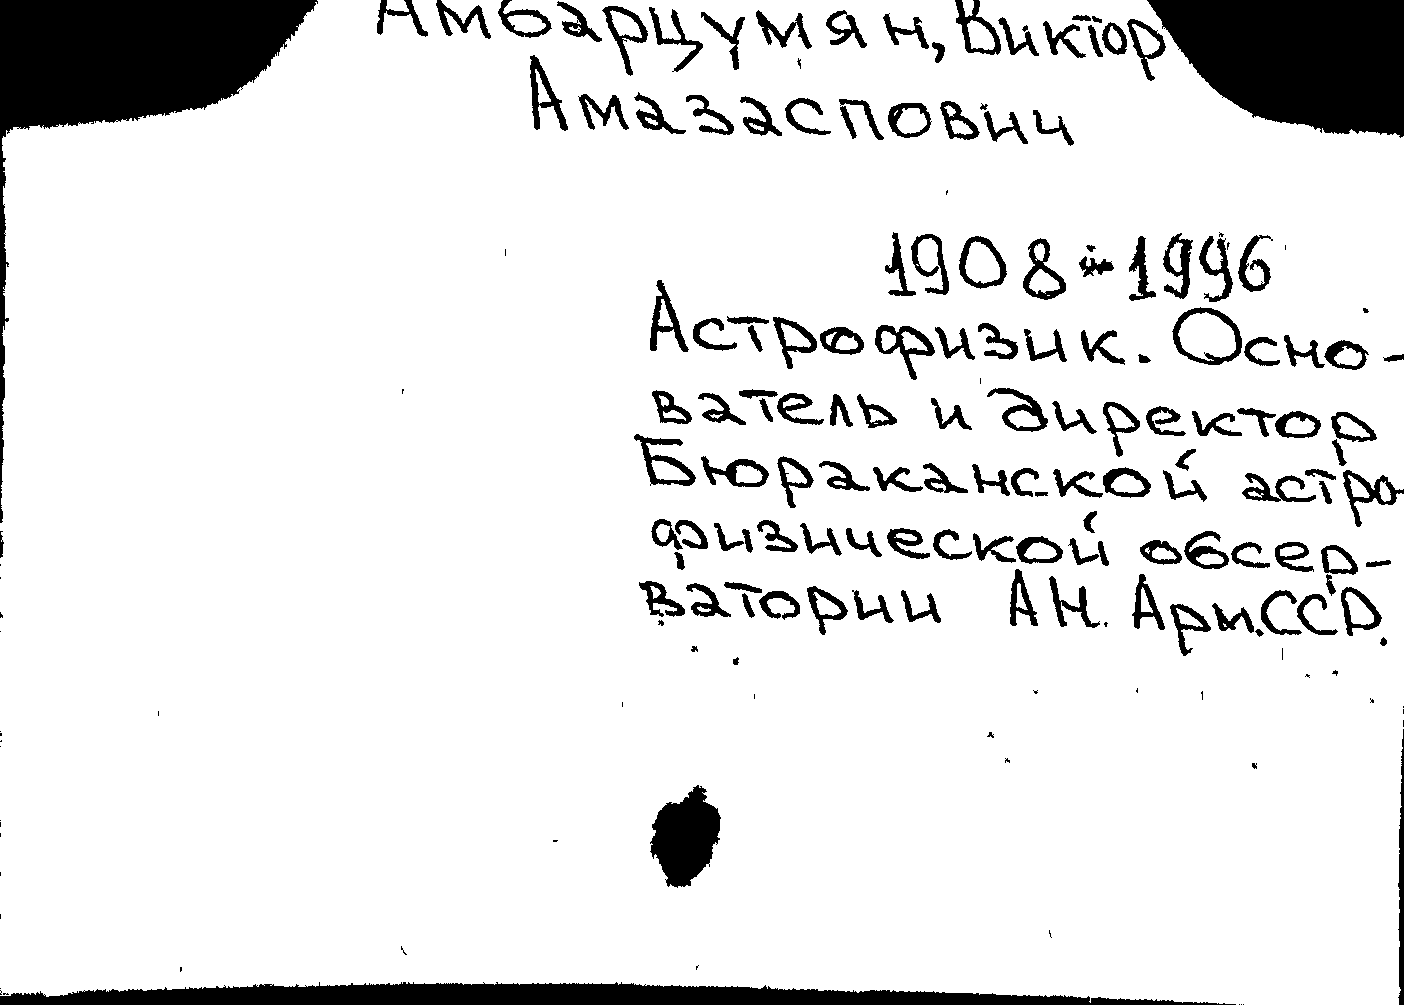 Амбарцумян, Виктор
Амазаспович
1908-1996
Астрофизик. Осно-
ватель и директор
Бюраканской астро-
физической обсер-
ватории АН. Арм.ССР.